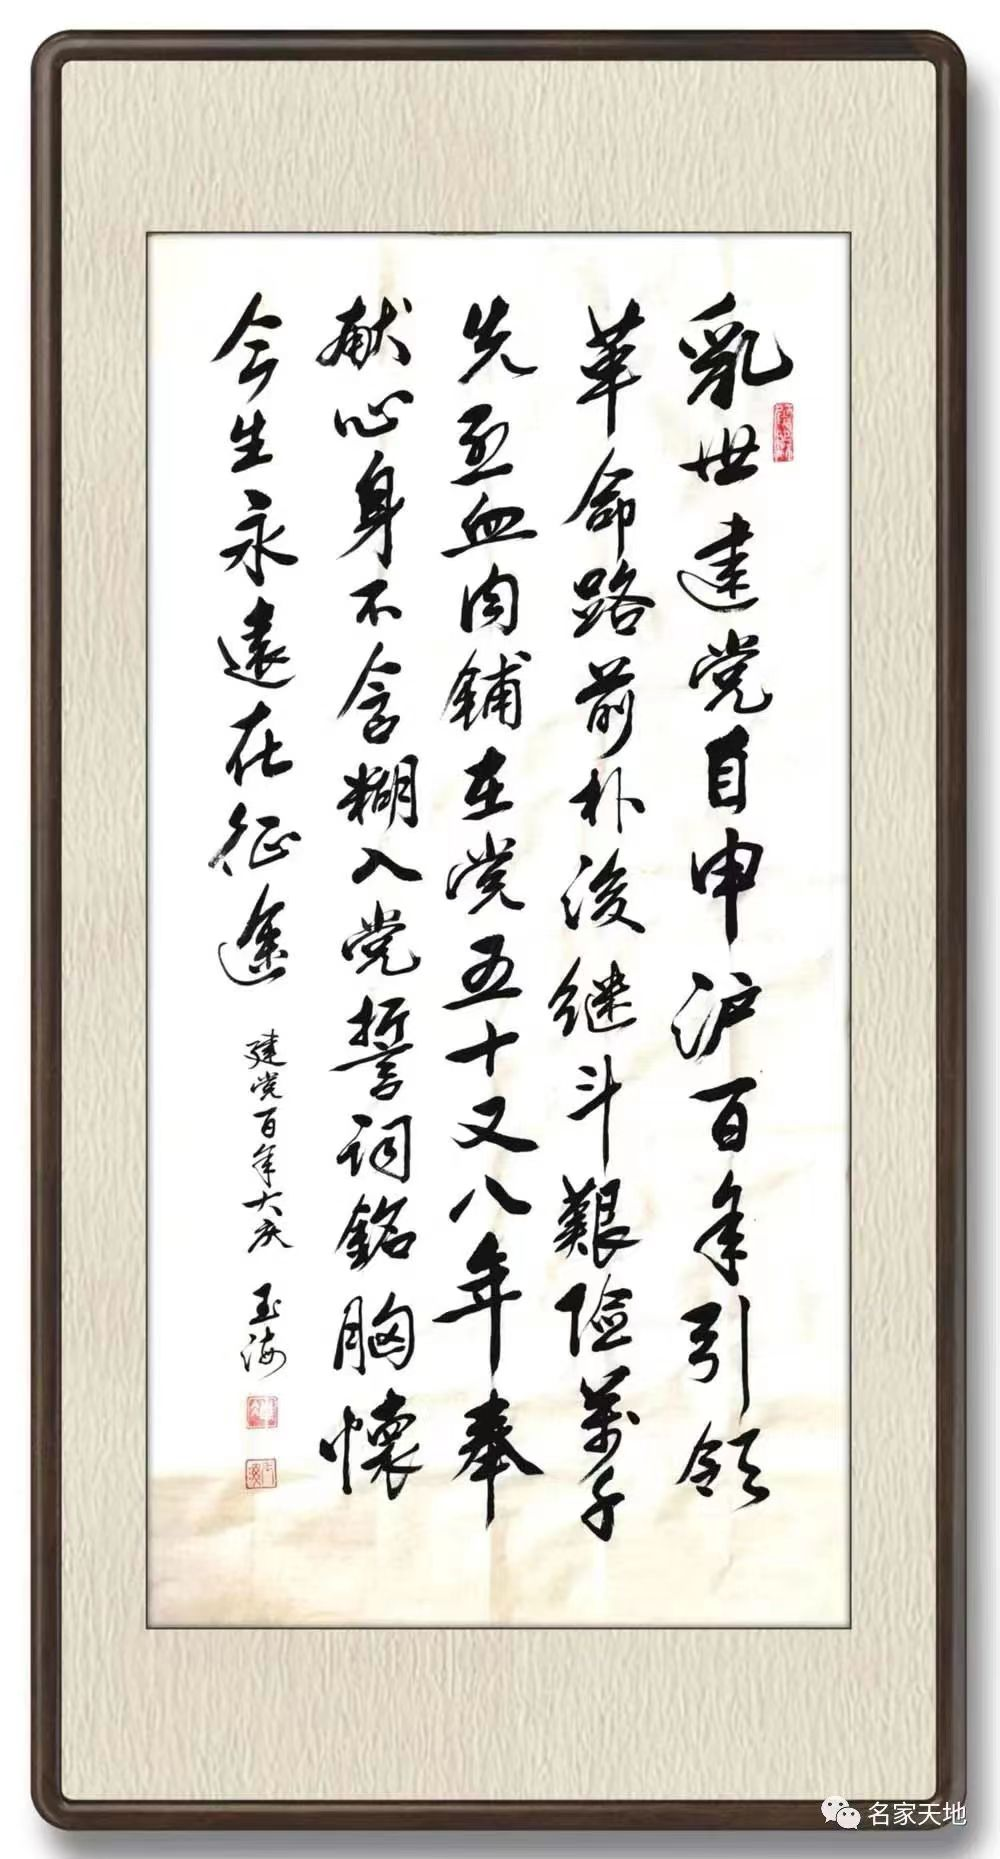 乱世建党自申沪百年引领
革命路前朴後继斗艱险萬千
先烈血肉铺在党五十又八年奉
献心身不含糊入党誓词銘胸懐
今生永遠在征途
建党百年大庆
玉海
名家天地